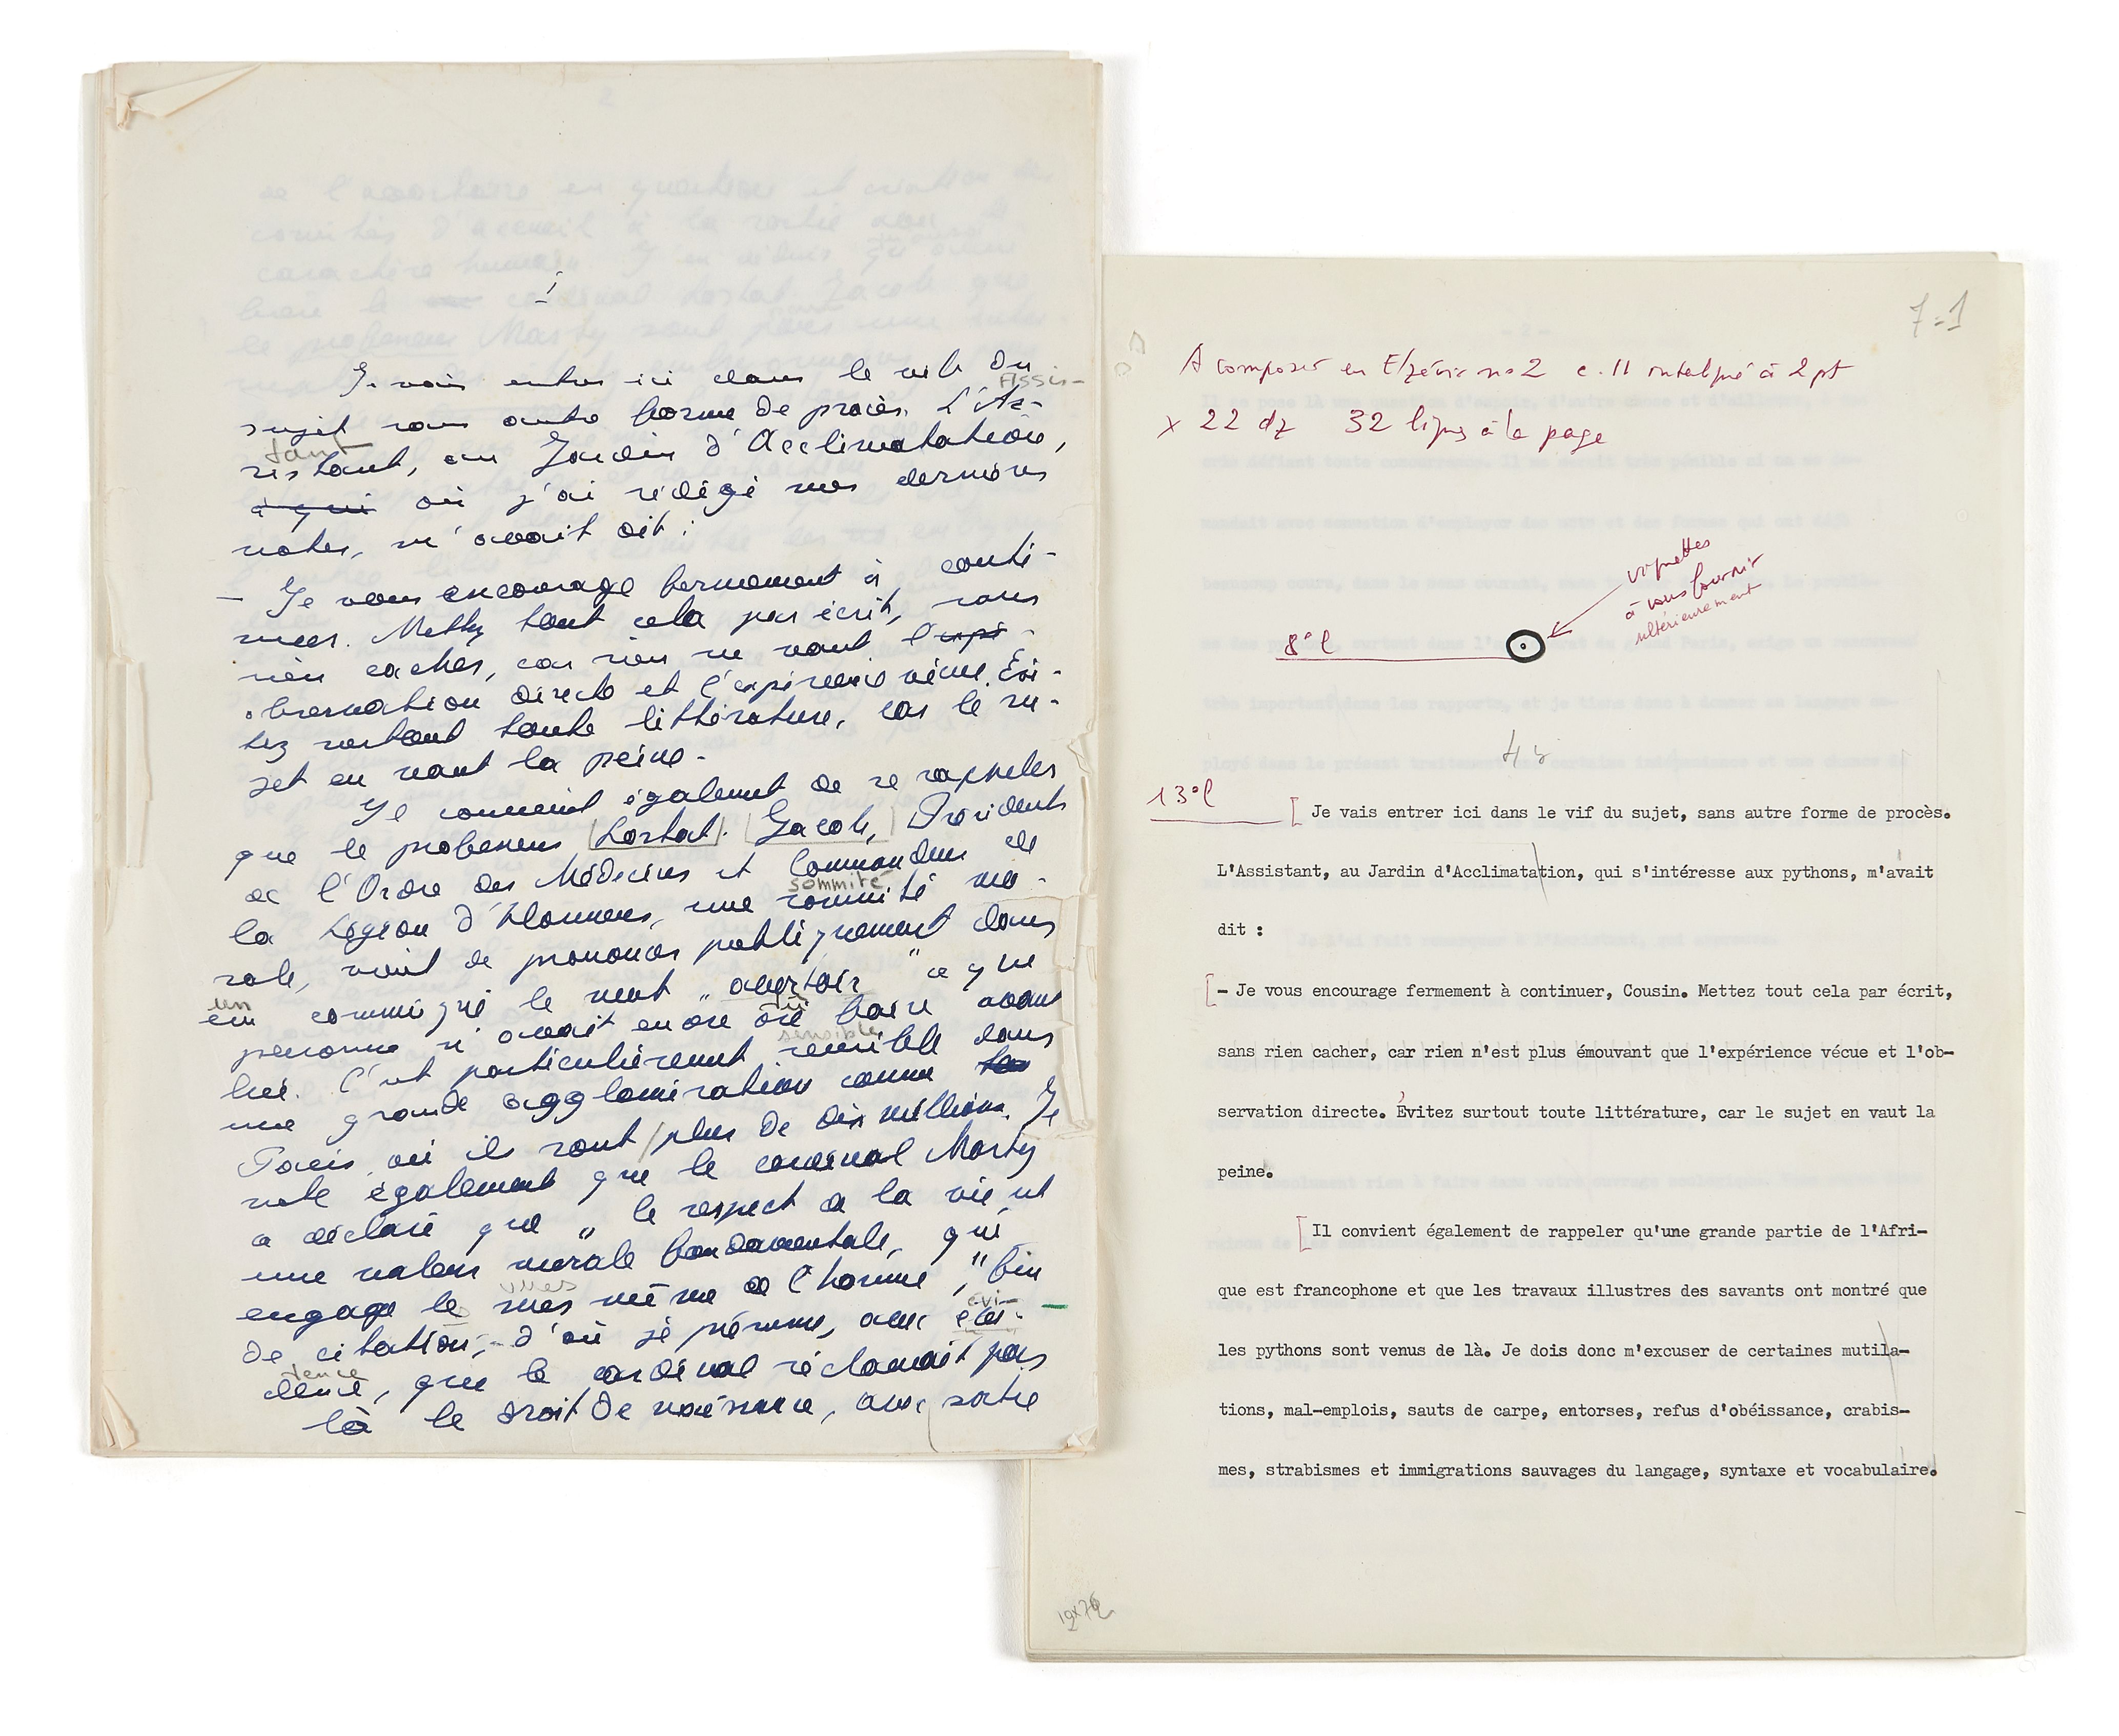 Je vais entrer ici dans le vif du
sujet sans autre forme de procès. L'As-
Assis-
sistant, au Jardin d'Acclimatation,
tant
à qui où j'ai rédigé mes dernières
notes, m'avait dit :
— Je vous encourage fermement à conti-
nuer. Mettez tout cela par écrit, sans
rien cacher, car rien ne vaut l'expé-
observation directe et l'expérience vécue. Evi-
tez surtout toute littérature, car le su-
jet en vaut la peine.
Il convient également de se rappeler
que le professeur Lortat-Jacob, Président
de l'Ordre des Médecins et Commandeur de
la Légion d'Honneur, une sommité mo-
sommité
rale, vient de prononcer publiquement dans
un communiqué le mot "avortoir" ce que
un
personne n'avait encore osé faire avant
lui. C'est particulièrement sensible dans
sensible
une grande agglomération comme
Paris, où ils sont plus de dix millions. Je
note également que le cardinal Marty
a déclaré que "le respect de la vie est
une valeur morale fondamentale, qui
engage le sens même de l'homme", fin
de citation, - d'où je présume, avec évi-
évi-
dence, que le cardinal réclamait par
dence
là le droit de naissance, avec sortie
7-1
A composer en Elzévir no 2 c. 11 interligné à 2 pt
x 22 dz 32 lignes à la page
vignettes
à vous fournir
ultérieurement
8°l
13°l
Je vais entrer ici dans le vif du sujet, sans autre forme de procès.
L'Assistant, au Jardin d'Acclimatation, qui s'intéresse aux pythons, m'avait
dit :
- Je vous encourage fermement à continuer, Cousin. Mettez tout cela par écrit,
sans rien cacher, car rien n'est plus émouvant que l'expérience vécue et l'ob-
servation directe. Évitez surtout toute littérature, car le sujet en vaut la
peine.
Il convient également de rappeler qu'une grande partie de l'Afri-
que est francophone et que les travaux illustres des savants ont montré que
les pythons sont venus de là. Je dois donc m'excuser de certaines mutila-
tions, mal-emplois, sauts de carpe, entorses, refus d'obéissance, crabis-
mes, strabismes et immigrations sauvages du langage, syntaxe et vocabulaire.